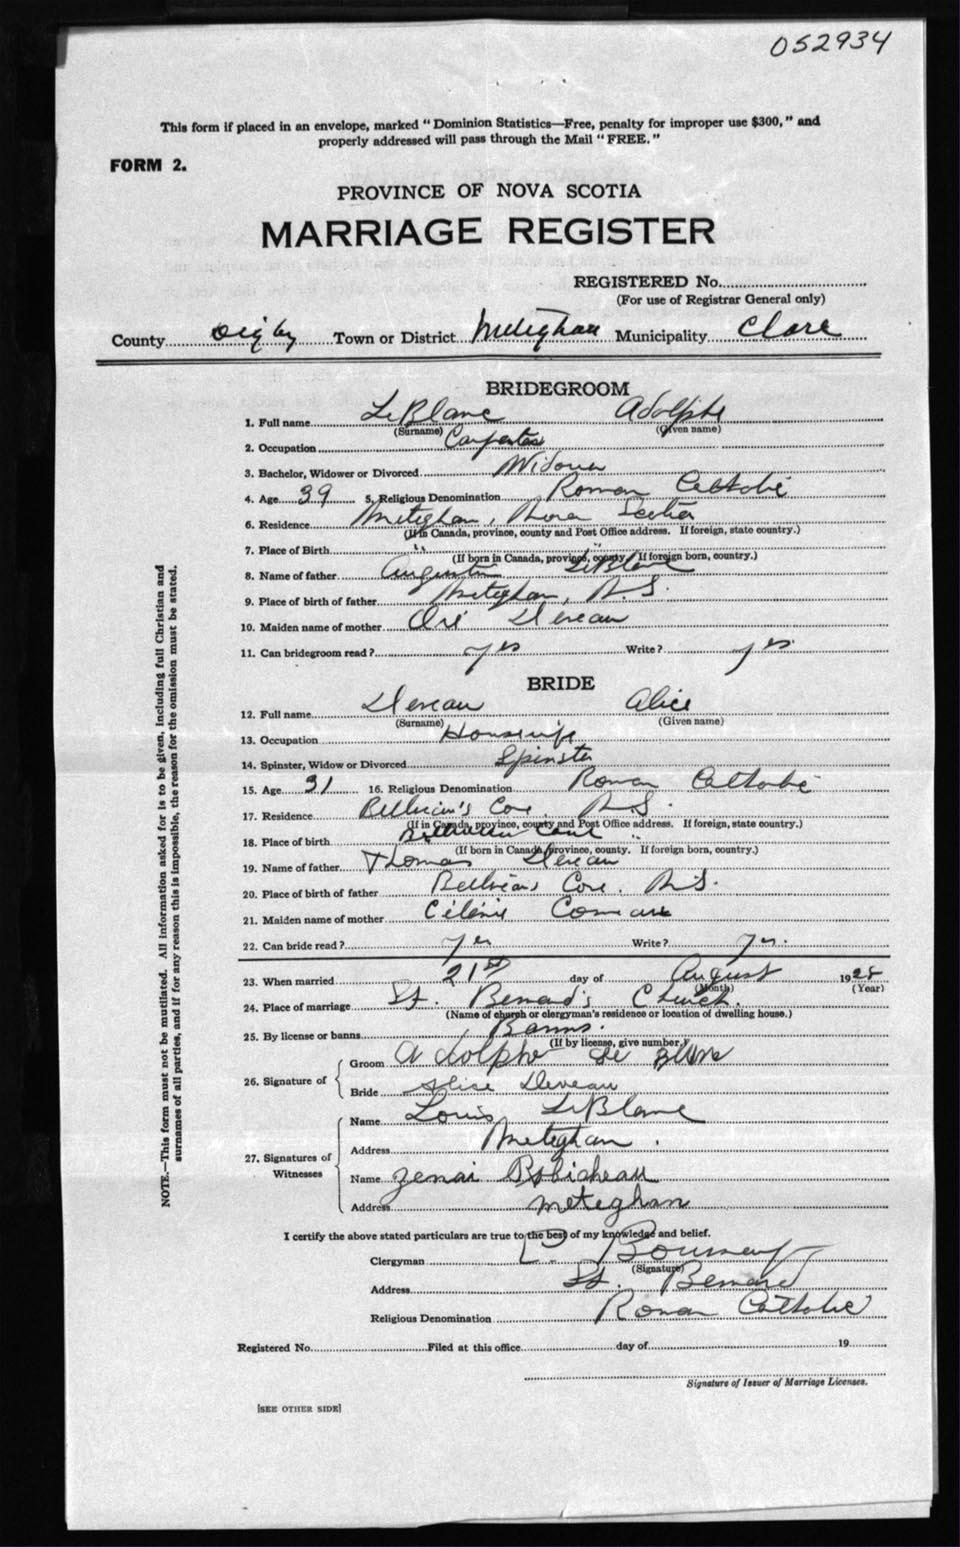 052934
This form if placed in an envelope, marked "Dominion Statistics—Free, penalty for improper use $300," and
properly addressed will pass through the Mail "FREE."
FORM 2.
PROVINCE OF NOVA SCOTIA
MARRIAGE REGISTER
REGISTERED No.
(For use of Registrar General only)
County Digby Town or District Meteghan Municipality Clare
BRIDEGROOM
1. Full name LeBlanc Adolphe
(Surname) (Given name)
2. Occupation Carpenter
3. Bachelor, Widower or Divorced Widower
4. Age 39 5. Religious Denomination Roman Catholic
6. Residence Meteghan, Nova Scotia
(If in Canada, province, county and Post Office address. If foreign, state country.)
7. Place of Birth " "
(If born in Canada, province, county. If foreign born, country.)
8. Name of father Augustin LeBlanc
9. Place of birth of father Meteghan, N.S.
10. Maiden name of mother Deveau
11. Can bridegroom read? yes Write? yes
BRIDE
12. Full name Deveau Alice
(Surname) (Given name)
13. Occupation Housewife
14. Spinster, Widow or Divorced Spinster
15. Age 31 16. Religious Denomination Roman Catholic
17. Residence Belliveau's Cove N.S.
(If in Canada, province, county and Post Office address. If foreign, state country.)
18. Place of birth Belliveau Cove "
(If born in Canada, province, county. If foreign born, country.)
19. Name of father Thomas Deveau
20. Place of birth of father Belliveau's Cove. N.S.
21. Maiden name of mother Célénie Comeau
22. Can bride read? yes Write? yes.
23. When married 21st day of August 1928
(Month) (Year)
24. Place of marriage St. Bernard's Church.
(Name of church or clergyman's residence or location of dwelling house.)
25. By license or banns Banns.
(If by license, give number.)
26. Signature of
Groom Adolphe Le Blanc
Bride Alice Deveau
27. Signatures of Witnesses
Name Louis LeBlanc
Address Meteghan.
Name Zenai Robicheau
Address Meteghan
I certify the above stated particulars are true to the best of my knowledge and belief.
Clergyman
(Signature)
Address St. Bernard
Religious Denomination Roman Catholic
Registered No. Filed at this office day of 19
Signature of Issuer of Marriage Licenses.
[SEE OTHER SIDE]
NOTE.—This form must not be mutilated. All information asked for is to be given, including full Christian and
surnames of all parties, and if for any reason this is impossible, the reason for the omission must be stated.